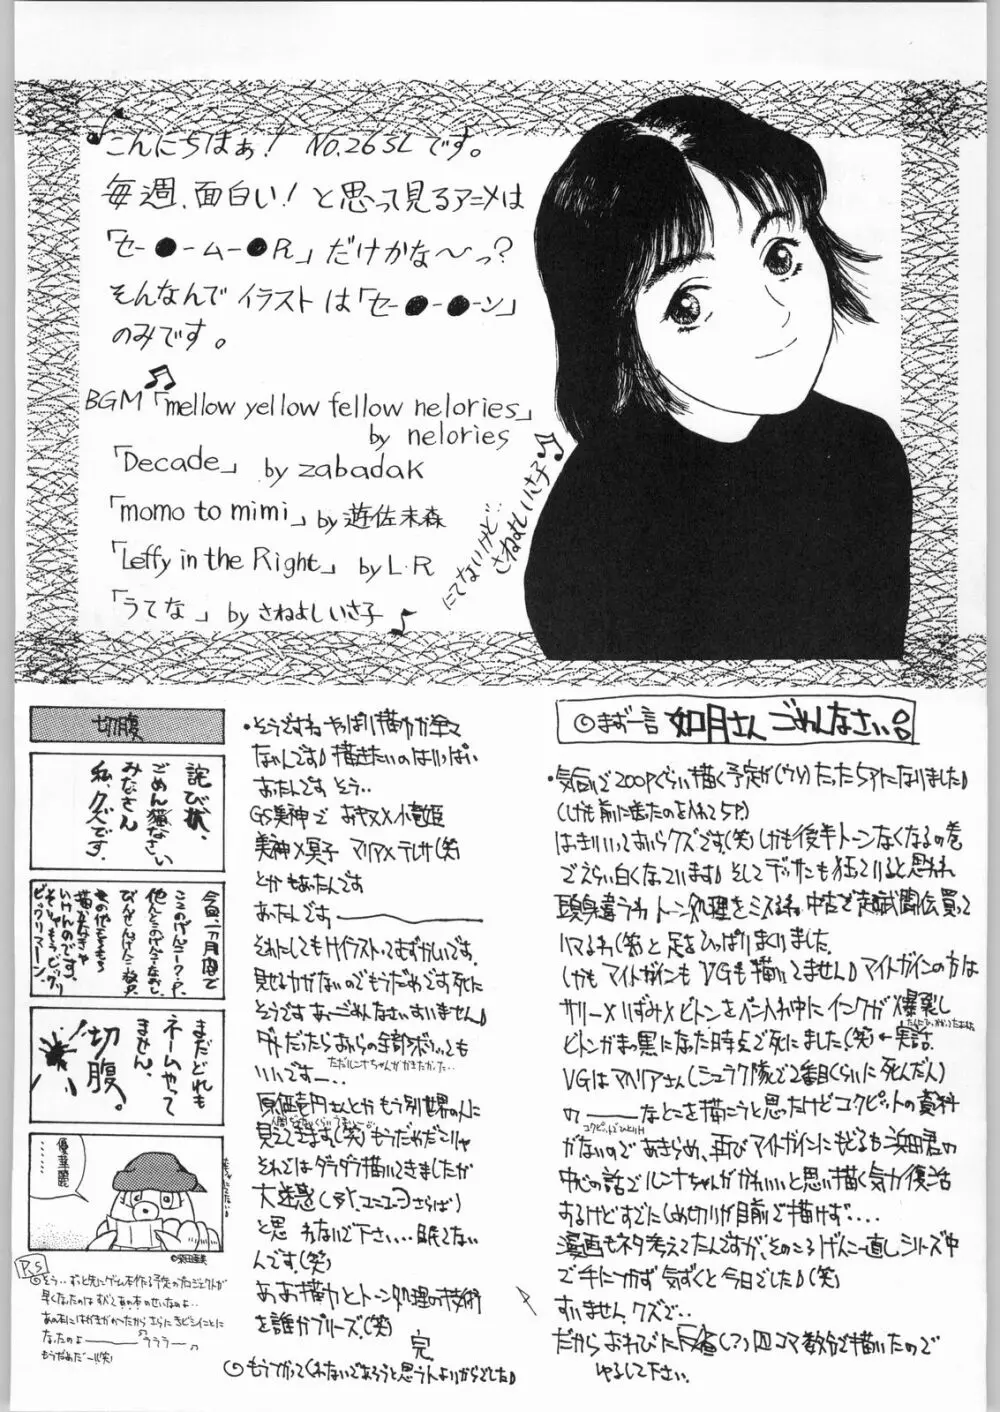 こんにちはぁ! NO.26 SLです。
毎週、面白い!と思って見るアニメは
「セー●ームー●R」だけかな〜っ?
そんなんでイラストは「セー●ー●ーン」
のみです。
BGM「mellow yellow fellow nelories」
by nelories
「Decade」 by zabadak
「momo to mimi」by 遊佐未森
「Leffy in the Right」 by L・R
「うてな」by さねよしいさ子
にてないけど…
さねよしいさ子
◎まず一言 如月さん ごめんなさい
・気合いで200Pぐらい描く予定が(ウソ)たった5Pになりました♪
(しかも前に送ったのを入れて5P)
はっきりいっておいらクズです。(笑)しかも後半トーンなくなるの巻
でえらい白くなっています♪そしてデッサンも狂っていると思われ
頭身違うわトーン処理をミスるわ中古で超武闘伝買って
ハマるわ(笑)と足をひっぱりまくりました。
しかもマイトガインもVGも描いてません♪マイトガインの方は
サリー×いずみ×ビトンをペン入れ中にインクが爆裂し
ビトンがまっ黒になった時点で死にました。(笑)←実話
VGはマヘリアさん(シュラク隊で2番目くらいに死んだ人)
の――なとこを描こうと思ったけどコクピットの資料
がないのであきらめ、再びマイトガインにもどるも浜田君の
中心の話でルンナちゃんがかわいいと思い描く気力復活
あるけどすでにしめ切りが目前で描けず‥‥
漫画もネタ考えてたんですが、そのころげんこー直しシリーズ中
で手につかず気ずくと今日でした♪(笑)
すいません。クズで‥
だからおわびに(?)四コマ数分で描いたので
ゆるして下さい。
・そうですねやっぱり描力が全て
なんです♪描きたいのはいっぱい
あったんです そう‥
GS美神で おキヌ×小竜姫
美神×冥子 マリア×テレサ(笑)
とかもあったんです
あったんです――
それにしてもHイラストってむずかしいです。
見せる力がないのでもうだめです死に
そうですあーごめんなさいすいません♪
ダメだったらおいらの全部ボツっても
いいですー‥
ただルンナちゃんがかきたかった‥
原価壱円さんとかもう別世界の人に
見えてきます(笑)もうだめだこりゃ
それではダラダラ描いてきましたが
大迷惑(シタ、ユニコーンさらば)
と思わないで下さい‥‥眠くてない
んです。(笑)
あぁ描力とトーン処理の技術
を誰かプリーズ。(笑)
完
◎もうつかってくれないであろうと思う人よりからでした♪
切腹
詫び状、
ごめん猫なさい
みなさん
私、クズです。
今回、一ヶ月かけて
ビックリマーン。
まだどれも
ネームやって
ません。
切腹。
優華麗
……
P.S
◎そう‥ずっと先にゲームを作る予定のプロジェクトが
早くなったのはすべてあの本のせいなのよ‥
なったのよ―― ララララー
もうだめだー!!(笑)